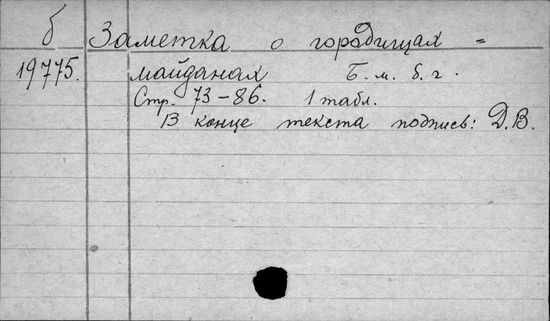 б Заметка о городищах =
19775. майданах Б. м. б. г.
Стр. 73-86. 1 табл.
В конце текста подпись: Д.В.